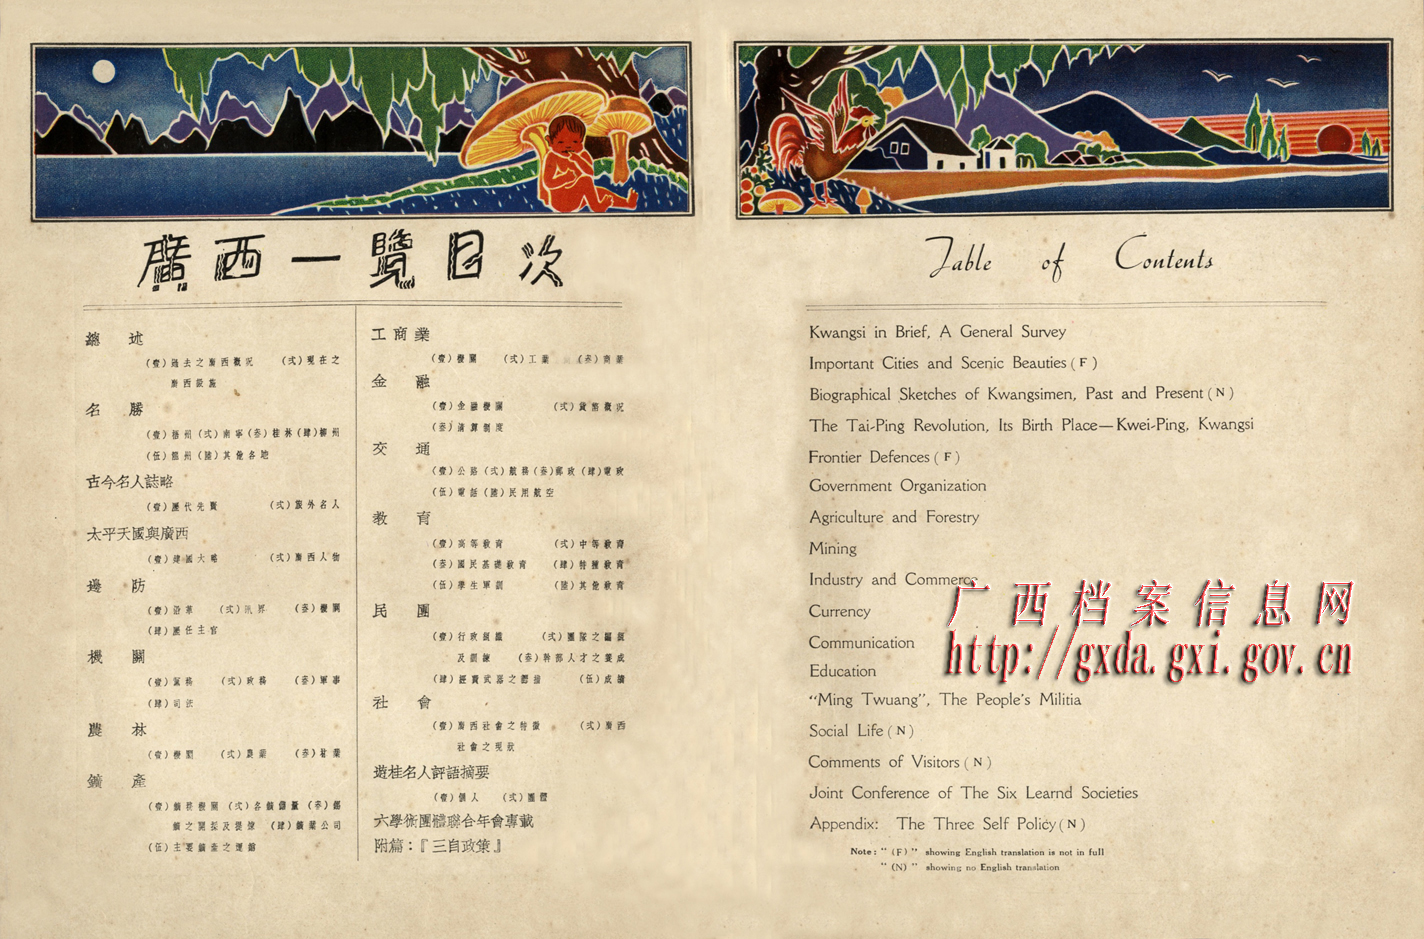 廣西一覽目次
總述
(壹)過去之廣西概況 (弍)現在之
廣西設施
名勝
(壹)梧州(弍)南寧(叁)桂林(肆)柳州
(伍)龍州(陸)其他各地
古今名人誌略
(壹)歷代先賢 (弍)旅外名人
太平天國與廣西
(壹)建國大略 (弍)廣西人物
邊防
(壹)沿革 (弍)汛界 (叁)機關
(肆)歷任主官
機關
(壹)黨務 (弍)政務 (叁)軍事
(肆)司法
農林
(壹)機關 (弍)農業 (叁)林業
鑛產
(壹)鑛務機關 (弍)各鑛儲量 (叁)
鑛之開採及提煉 (肆)鑛業公司
(伍)主要鑛產之運銷
工商業
(壹)機關 (弍)工業 (叁)商業
金融
(壹)金融機關 (弍)貨幣概況
(叁)清算制度
交通
(壹)公路(弍)航務(叁)郵政(肆)電政
(伍)電話(陸)民用航空
教育
(壹)高等教育 (弍)中等教育
(叁)國民基礎教育 (肆)特種教育
(伍)學生軍訓 (陸)其他教育
民團
(壹)行政組織 (弍)團隊之編組
及訓練 (叁)幹部人才之養成
(肆)經費武器之籌措 (伍)成績
社會
(壹)廣西社會之特徵 (弍)廣西
社會之現狀
遊桂名人評語摘要
(壹)個人 (弍)團體
六學術團體聯合年會專載
附篇:『三自政策』
Table of Contents
Kwangsi in Brief, A General Survey
Important Cities and Scenic Beauties (F)
Biographical Sketches of Kwangsimen, Past and Present (N)
The Tai-Ping Revolution, Its Birth Place—Kwei-Ping, Kwangsi
Frontier Defences (F)
Government Organization
Agriculture and Forestry
Mining
Industry and Commerce
Currency
Communication
Education
"Ming Twuang", The People's Militia
Social Life (N)
Comments of Visitors (N)
Joint Conference of The Six Learnd Societies
Appendix: The Three Self Policy (N)
Note: "(F)" showing English translation is not in full
"(N)" showing no English translation
广西档案信息网
http://gxda.gxi.gov.cn